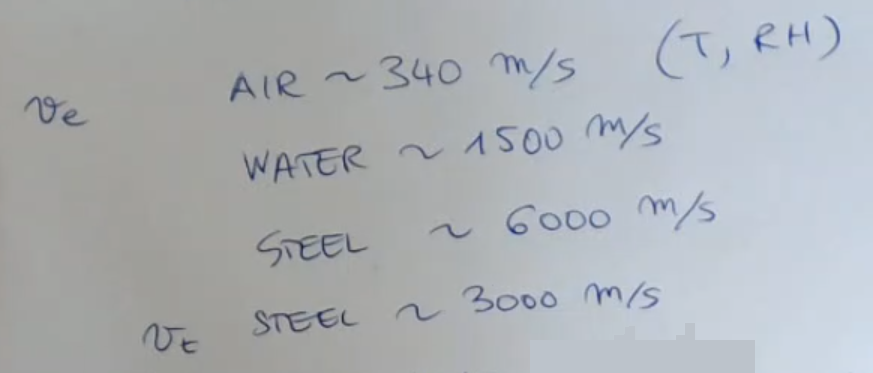 v_e AIR ~ 340 m/s (T, RH)
WATER ~ 1500 m/s
STEEL ~ 6000 m/s
v_t STEEL ~ 3000 m/s